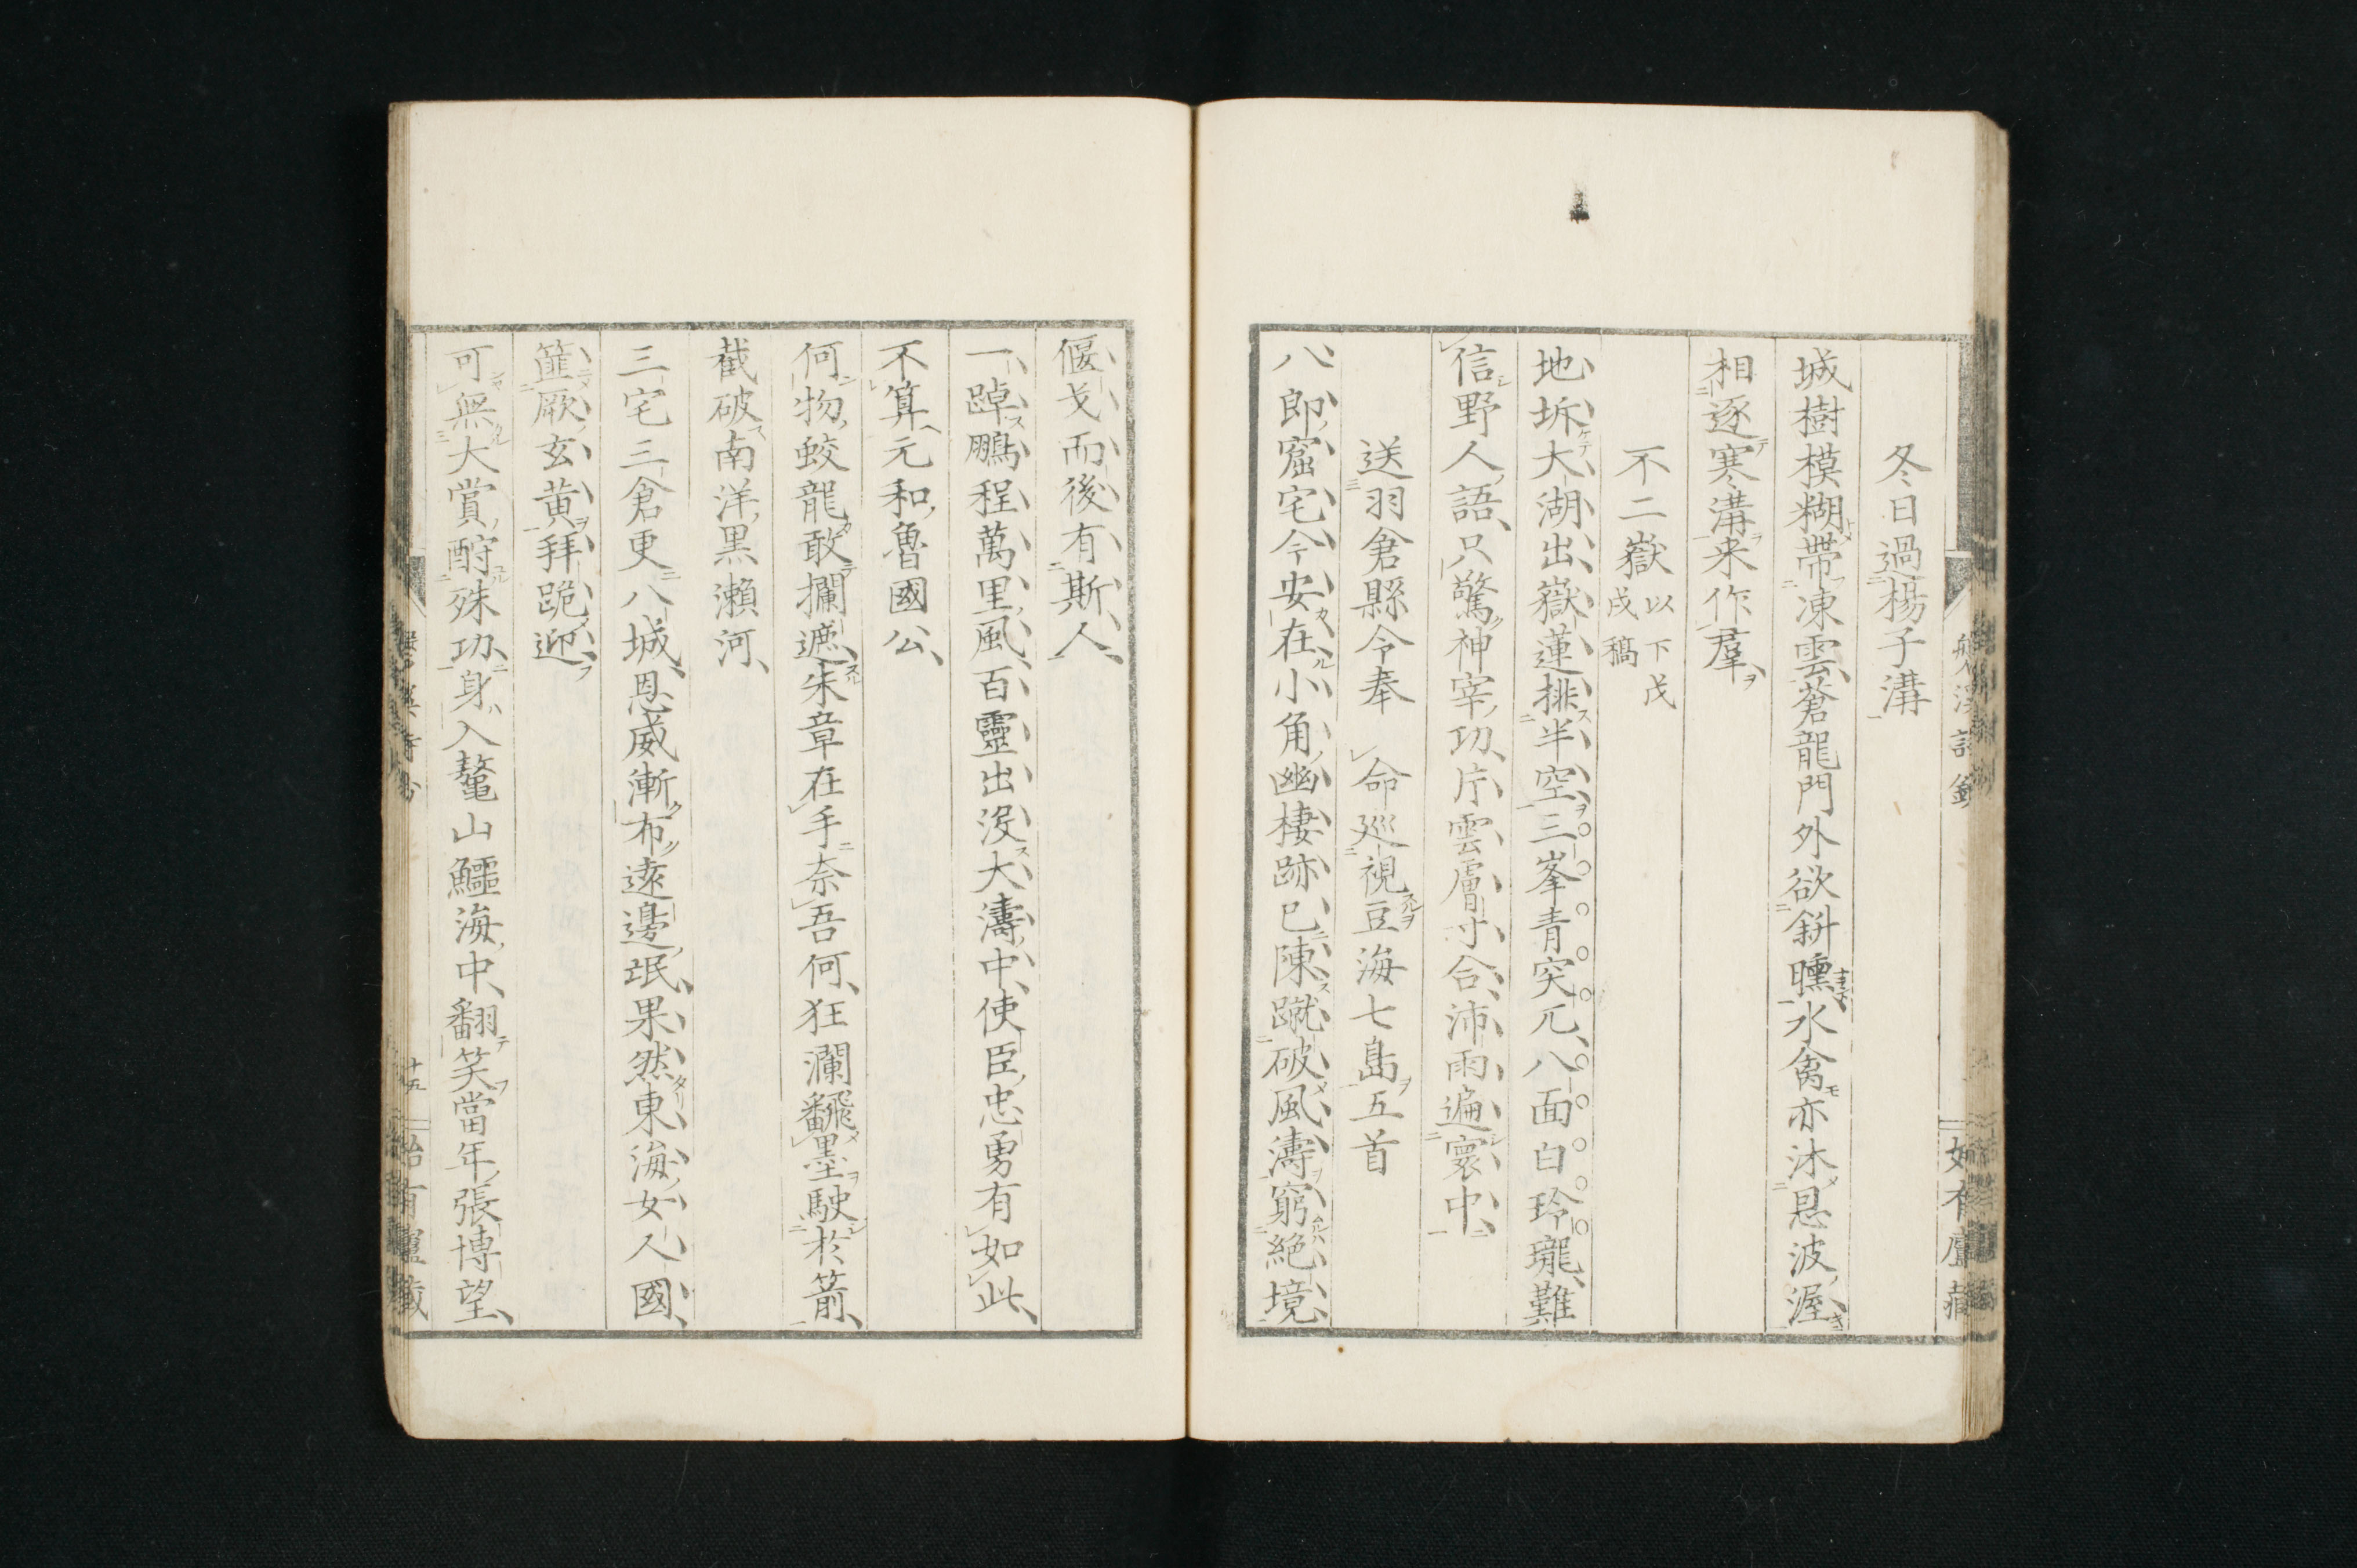 冬日過楊子溝
城樹模糊帶凍雲蒼龍門外欲餅曛水禽亦沐恩波渥
相逐寒溝来作羣
不二嶽以下戊戌稿
地坼大湖出嶽蓮排半空三峯青突兀八面白玲瓏難
信野人語只驚神宰功片雲膚寸合沛雨遍寰中
送羽倉縣令奉 命巡視豆海七島五首
八郎窟宅今安在小角幽棲跡已陳蹴破風濤窮絶境
偃戈而後有斯人
一踔鵬程萬里風百靈出没大濤中使臣忠勇有如此
不算元和魯國公
何物蛟龍敢攔遮朱章在手奈吾何狂瀾飜墨駛於箭
截破南洋黒瀬河
三宅三倉更八城恩威漸布遠邊氓果然東海女人國
篚厥玄黄拜跪迎
可無大賞酧殊功身入鼇山鱷海中翻笑當年張博望
十五